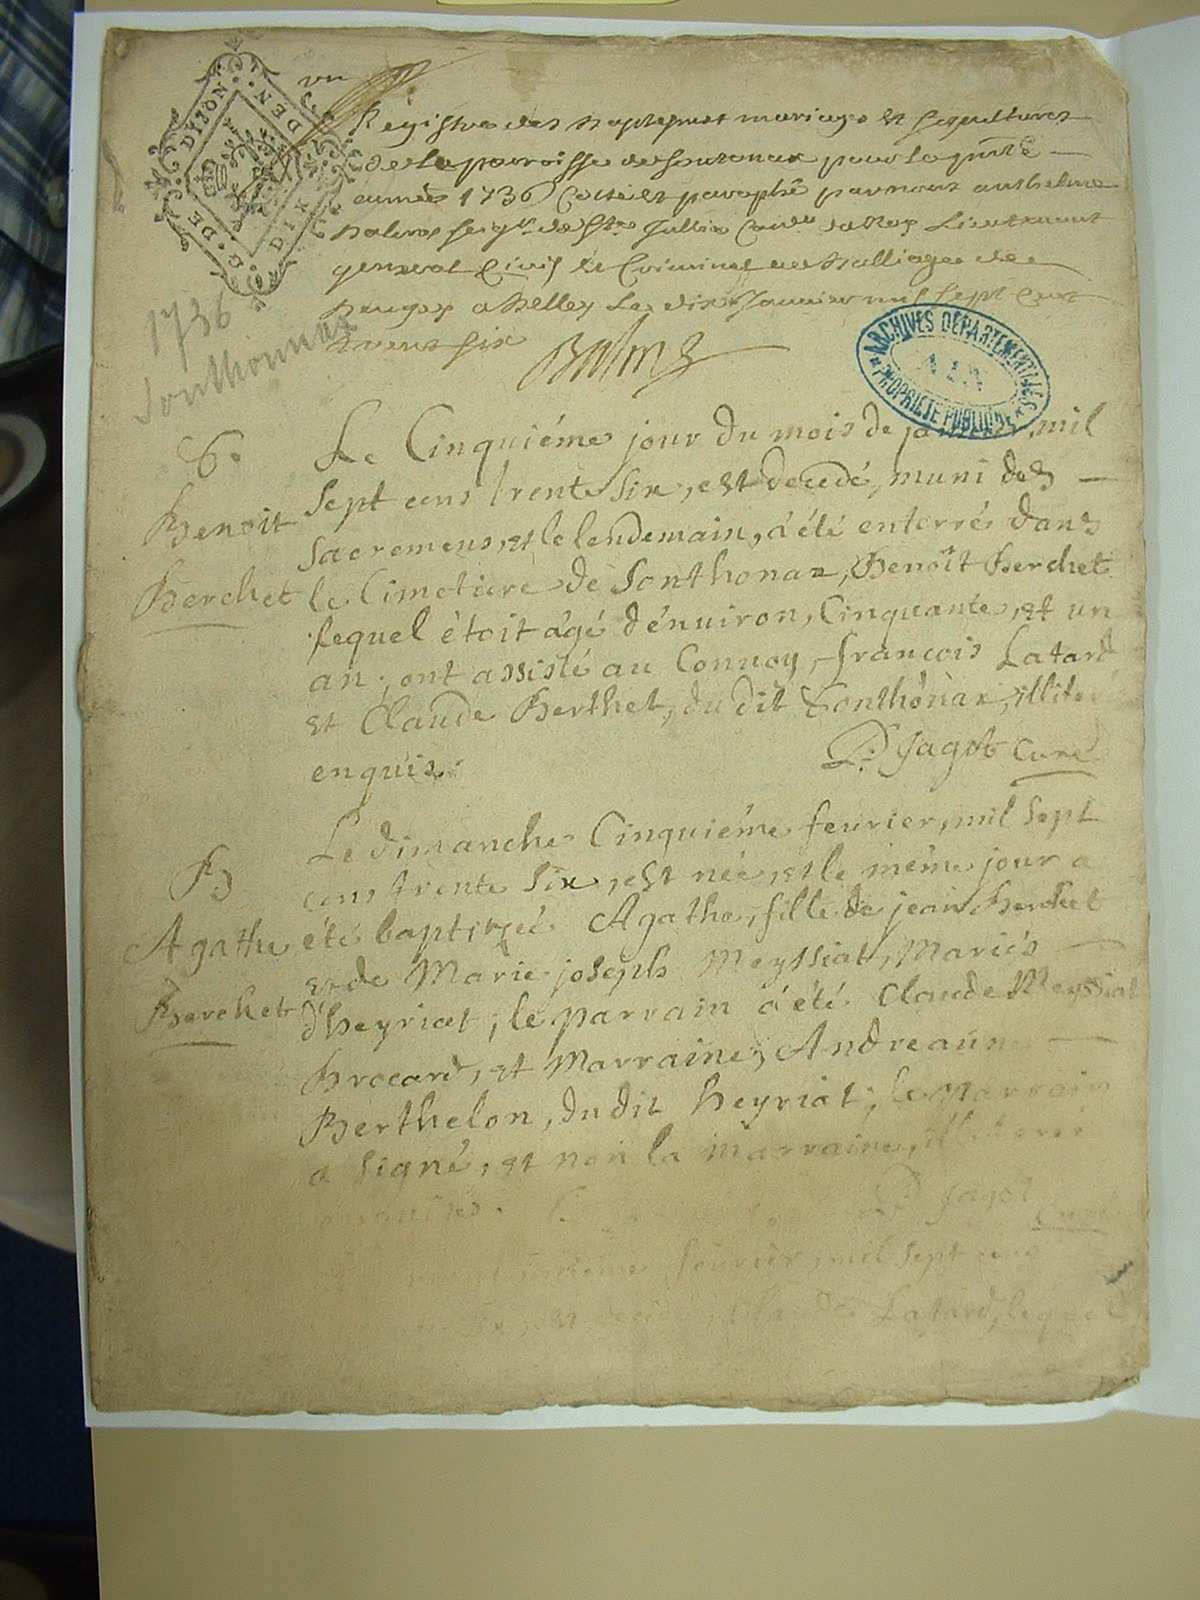 vn
G. DE DIJON
DIX DEN
Registre des Baptesmes mariage et sepultures
de la parroisse de Sontonax pour la pnte
année 1736 Cotté et paraphé par nous anthelme
Balme seigr de Ste Jullie Coner du Roy Lieutenant
general Civil et Criminel au Balliage de
Beugey a Belley le dix Janvier mil sept cent
trente six
Balme
1736
Sonthonnax
ARCHIVES DEPARTEMENTALES
AIN
PROPRIETE PUBLIQUE
S.
Benoit
Berchet
Le Cinquiéme jour du mois de janvier, mil
sept cens trente six, est decedé, muni des
sacremens, et le lendemain, a été enterré dans
le Cimetiere de Sonthonax, Benoît Berchet
lequel étoit agé d'enuiron, Cinquante, et un
an; ont assisté au Conuoy, francois Latard
et Claude Berthet, du dit Sonthonax, illiter
enquis.
D. Jagot Curé
B
Agathe
Berchet
Le dimanche Cinquiéme feurier, mil sept
cens trente six, est née, et le même jour a
été baptizée Agathe, fille de jean Berchet
et de Marie joseph Meyssiat, Mariés
d'heyriat; le parrain a été Claude Meyssiat
Brocard, et Marraine, Andreaune
Berthelon, du dit heyriat; le parrain
a signé, et non la marraine, illiteree
enquises. Jagot
Curé
feurier, mil sept cens
Latard, lequel